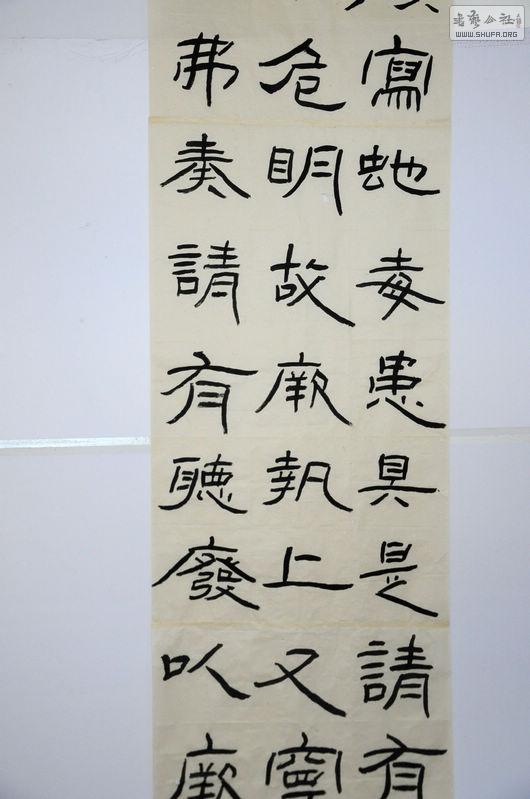 寫虵毒患具是請有
危明故厥執上又寧
弗奏請有聽廢以厥
書藝公社
WWW.SHUFA.ORG